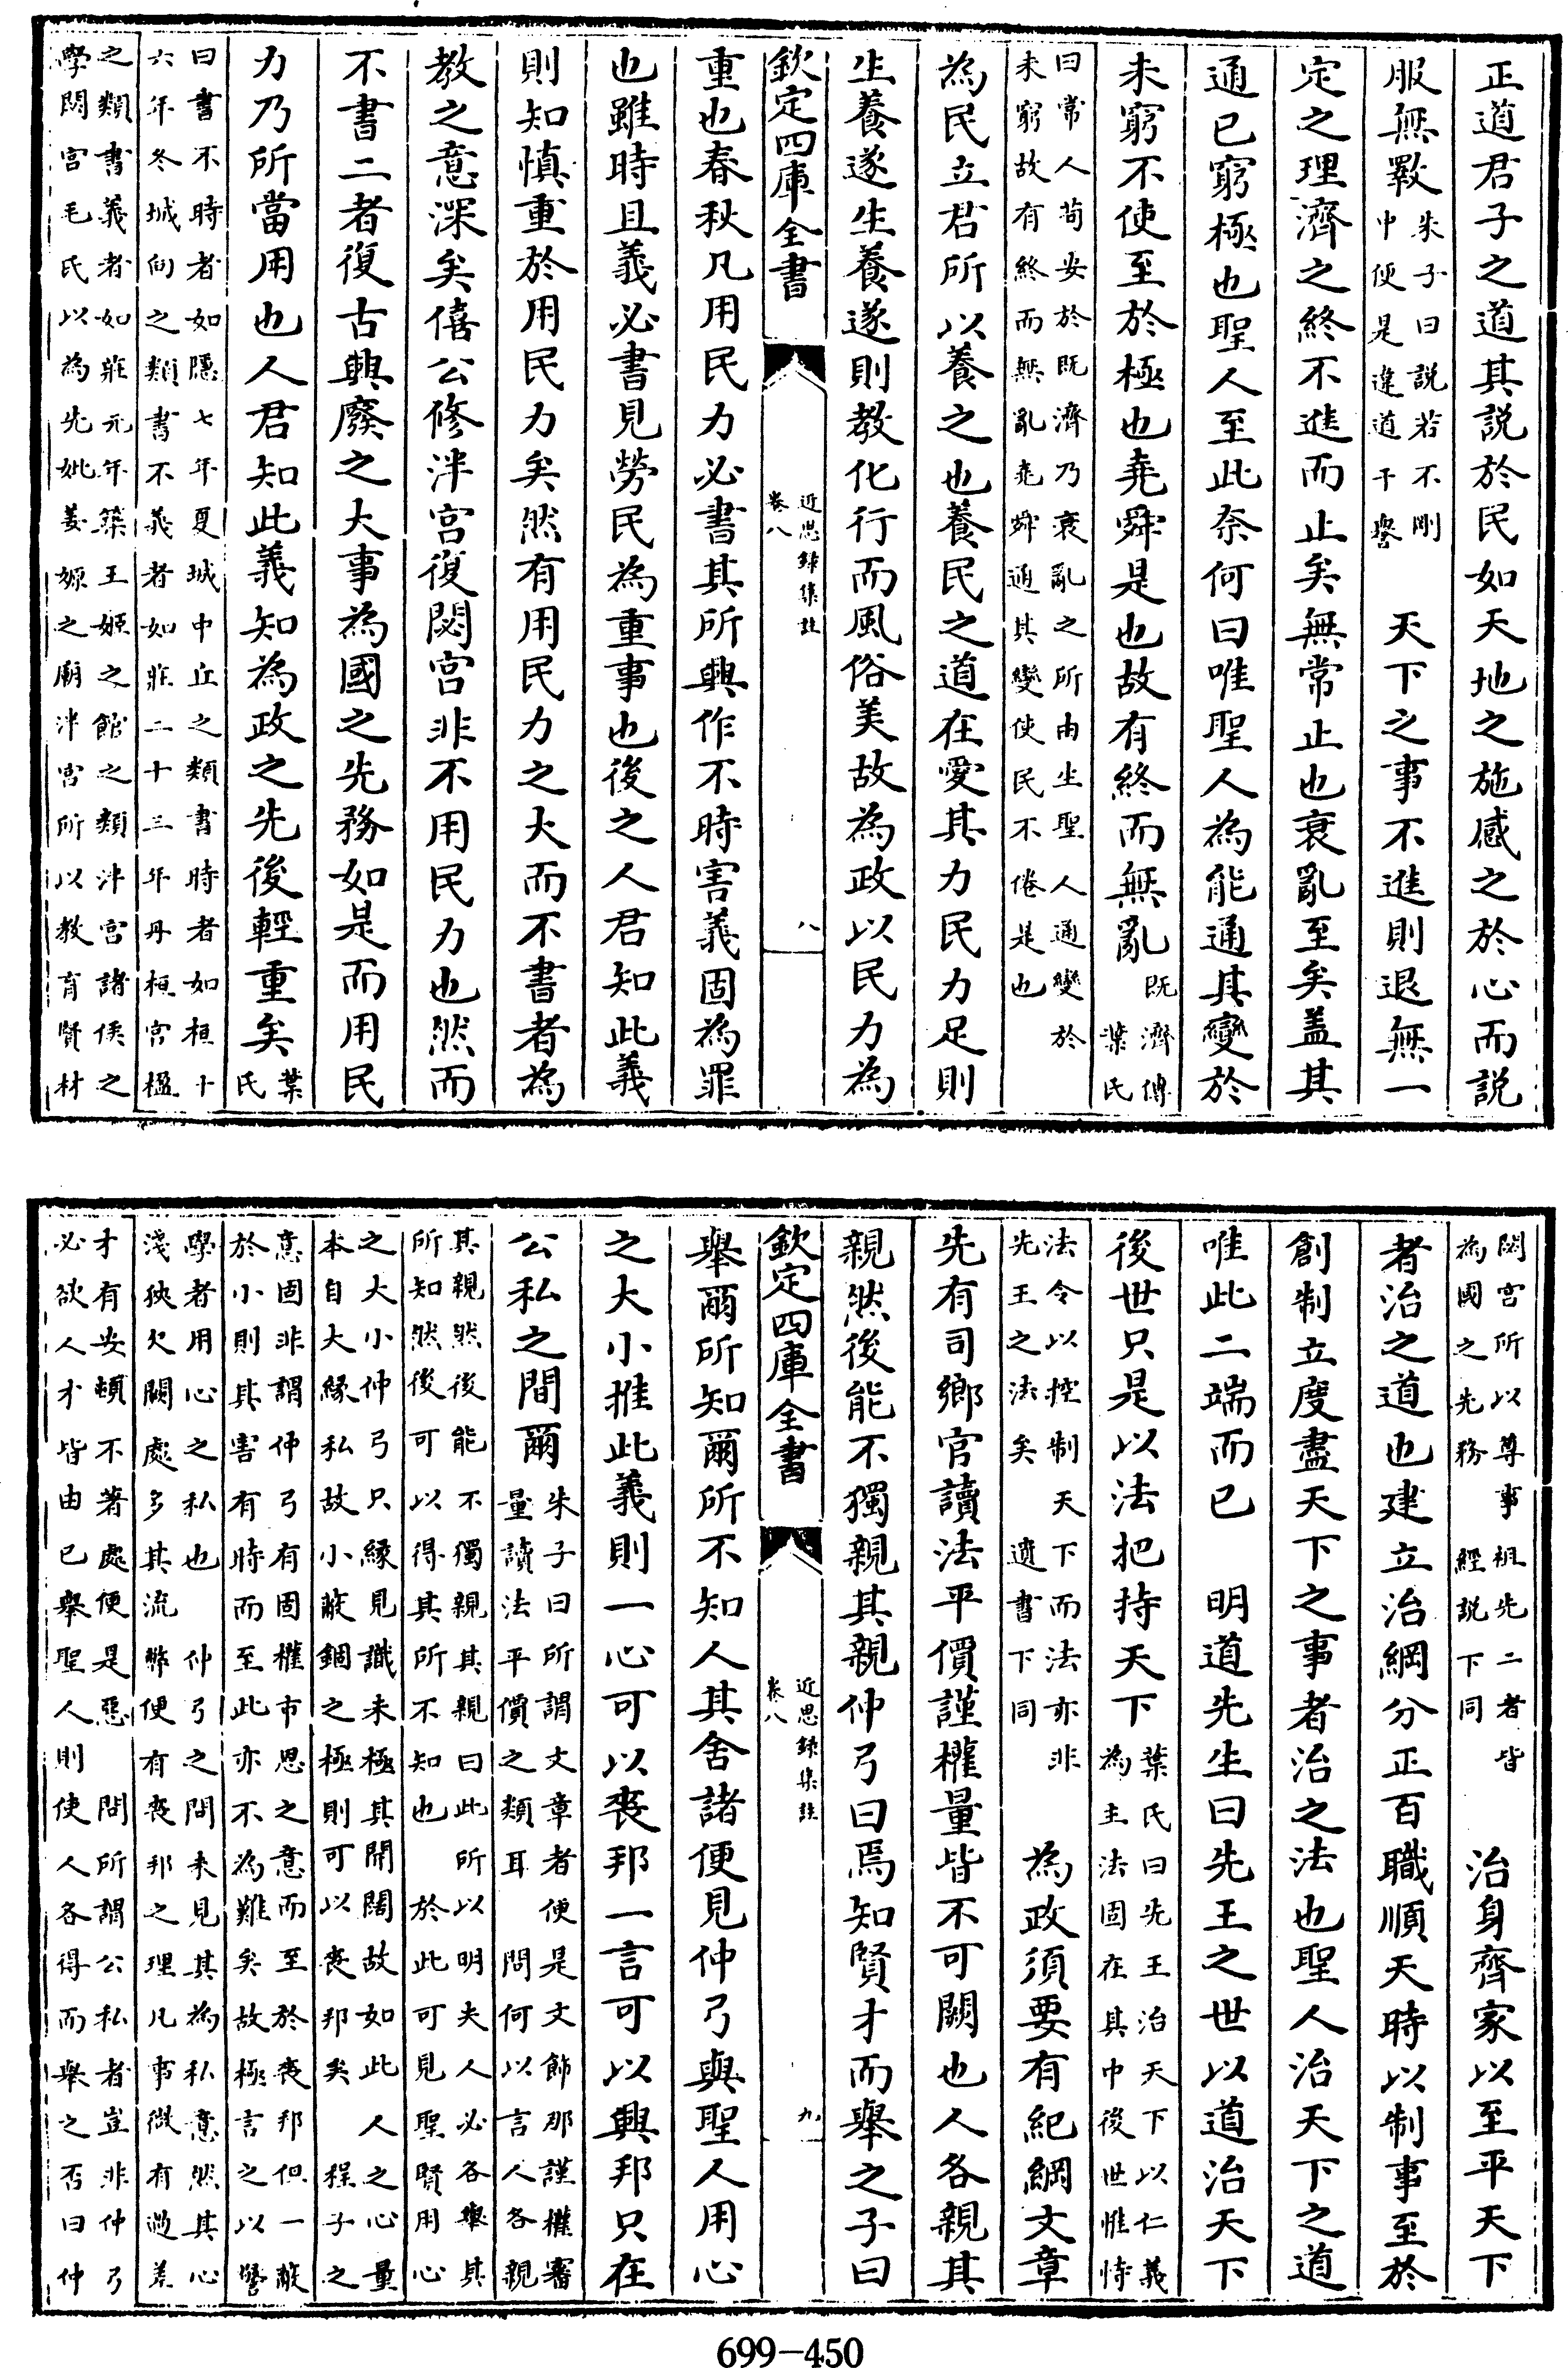 正道君子之道其説於民如天地之施感之於心而説
服無斁朱子曰説若不剛
中便是違道干譽　天下之事不進則退無一
定之理濟之終不進而止矣無常止也衰亂至矣盖其
通已窮極也聖人至此奈何曰唯聖人為能通其變於
未窮不使至於極也堯舜是也故有終而無亂既濟傳
葉氏
曰常人苟安於既濟乃衰亂之所由生聖人通變於
未窮故有終而無亂堯舜通其變使民不倦是也
為民立君所以養之也養民之道在愛其力民力足則
生養遂生養遂則教化行而風俗美故為政以民力為
欽定四庫全書
近思録集註
卷八
八
重也春秋凡用民力必書其所興作不時害義固為罪
也雖時且義必書見勞民為重事也後之人君知此義
則知慎重於用民力矣然有用民力之大而不書者為
教之意深矣僖公修泮宫復閟宫非不用民力也然而
不書二者復古興廢之大事為國之先務如是而用民
力乃所當用也人君知此義知為政之先後輕重矣葉
氏
曰書不時者如隱七年夏城中丘之類書時者如桓十
六年冬城向之類書不義者如莊二十三年丹桓宫楹
之類書義者如莊元年築王姬之館之類泮宫諸侯之
學閟宫毛氏以為先妣姜嫄之廟泮宫所以教育賢材
閟宫所以尊事祖先二者皆
為國之先務經説下同　治身齊家以至平天下
者治之道也建立治綱分正百職順天時以制事至於
創制立度盡天下之事者治之法也聖人治天下之道
唯此二端而已　明道先生曰先王之世以道治天下
後世只是以法把持天下葉氏曰先王治天下以仁義
為主法固在其中後世惟恃
法令以控制天下而法亦非
先王之法矣遺書下同　為政須要有紀綱文章
先有司鄉官讀法平價謹權量皆不可闕也人各親其
親然後能不獨親其親仲弓曰焉知賢才而舉之子曰
欽定四庫全書
近思録集註
卷八
九
舉爾所知爾所不知人其舍諸便見仲弓與聖人用心
之大小推此義則一心可以喪邦一言可以興邦只在
公私之間爾朱子曰所謂文章者便是文飾那謹權審
量讀法平價之類耳　問何以言人各親
其親然後能不獨親其親曰此所以明夫人必各舉其
所知然後可以得其所不知也　於此可見聖賢用心
之大小仲弓只緣見識未極其開闊故如此人之心量
本自大緣私故小蔽錮之極則可以喪邦矣　程子之
意固非謂仲弓有固權市思之意而至於喪邦但一蔽
於小則其害有時而至此亦不為難矣故極言之以警
學者用心之私也　仲弓之問未見其為私意然其心
淺狹欠闕處多其流弊便有喪邦之理凡事微有過差
才有安頓不著處便是惡　問所謂公私者豈非仲弓
必欲人才皆由已舉聖人則使人各得而舉之否曰仲
699-450